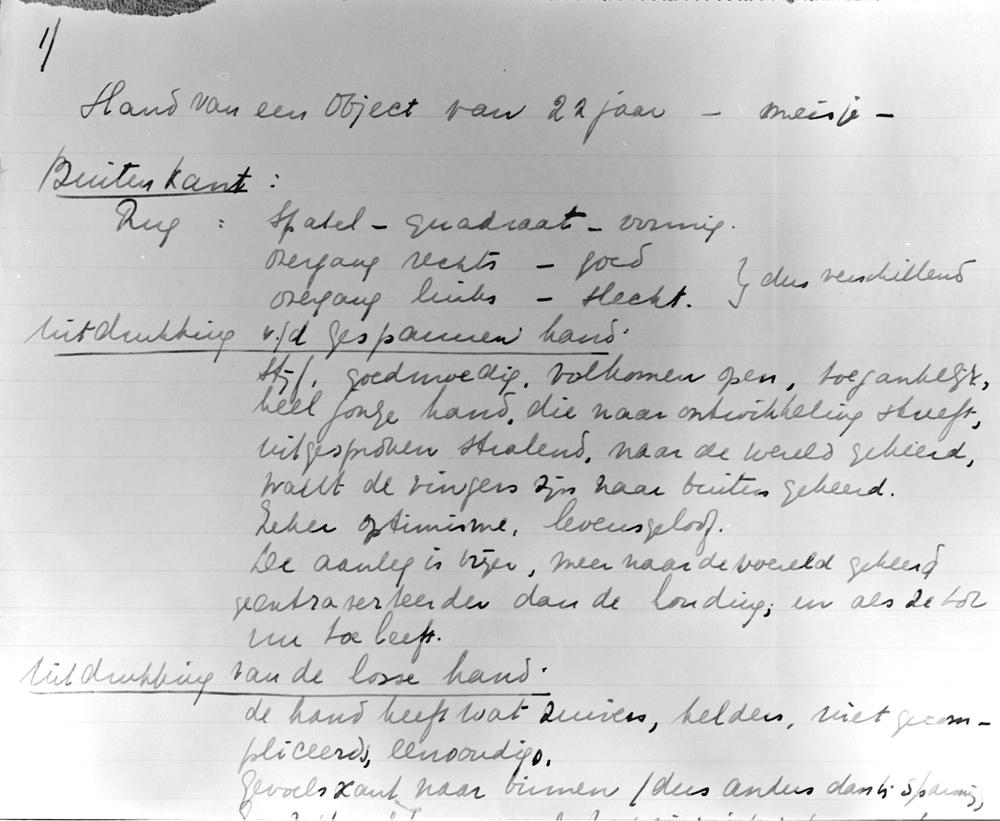 1/
Hand van een Object van 22 jaar – meisje –
Buitenkant :
Rug : Spatel – quadraat – vormig.
overgang rechts – goed
overgang links – slecht. } dus verschillend
Uitdrukking v/d gespannen hand.
Stijf, goedmoedig, volkomen open, toegankelijk,
heel jonge hand, die naar ontwikkeling streeft,
uitgesproken stralend, naar de wereld gekeerd,
want de vingers zijn naar buiten gekeerd.
Zeker optimisme, levensgeloof.
De aanleg is vrijer, meer naar de wereld gekeerd
geextraverteerder dan de houding; en als ze tot
nu toe leeft.
Uitdrukking van de losse hand.
de hand heeft wat zuivers, helders, niet gecom-
pliceerds, eenvoudigs.
Gevoelskant naar binnen / dus anders dan bij spanning,